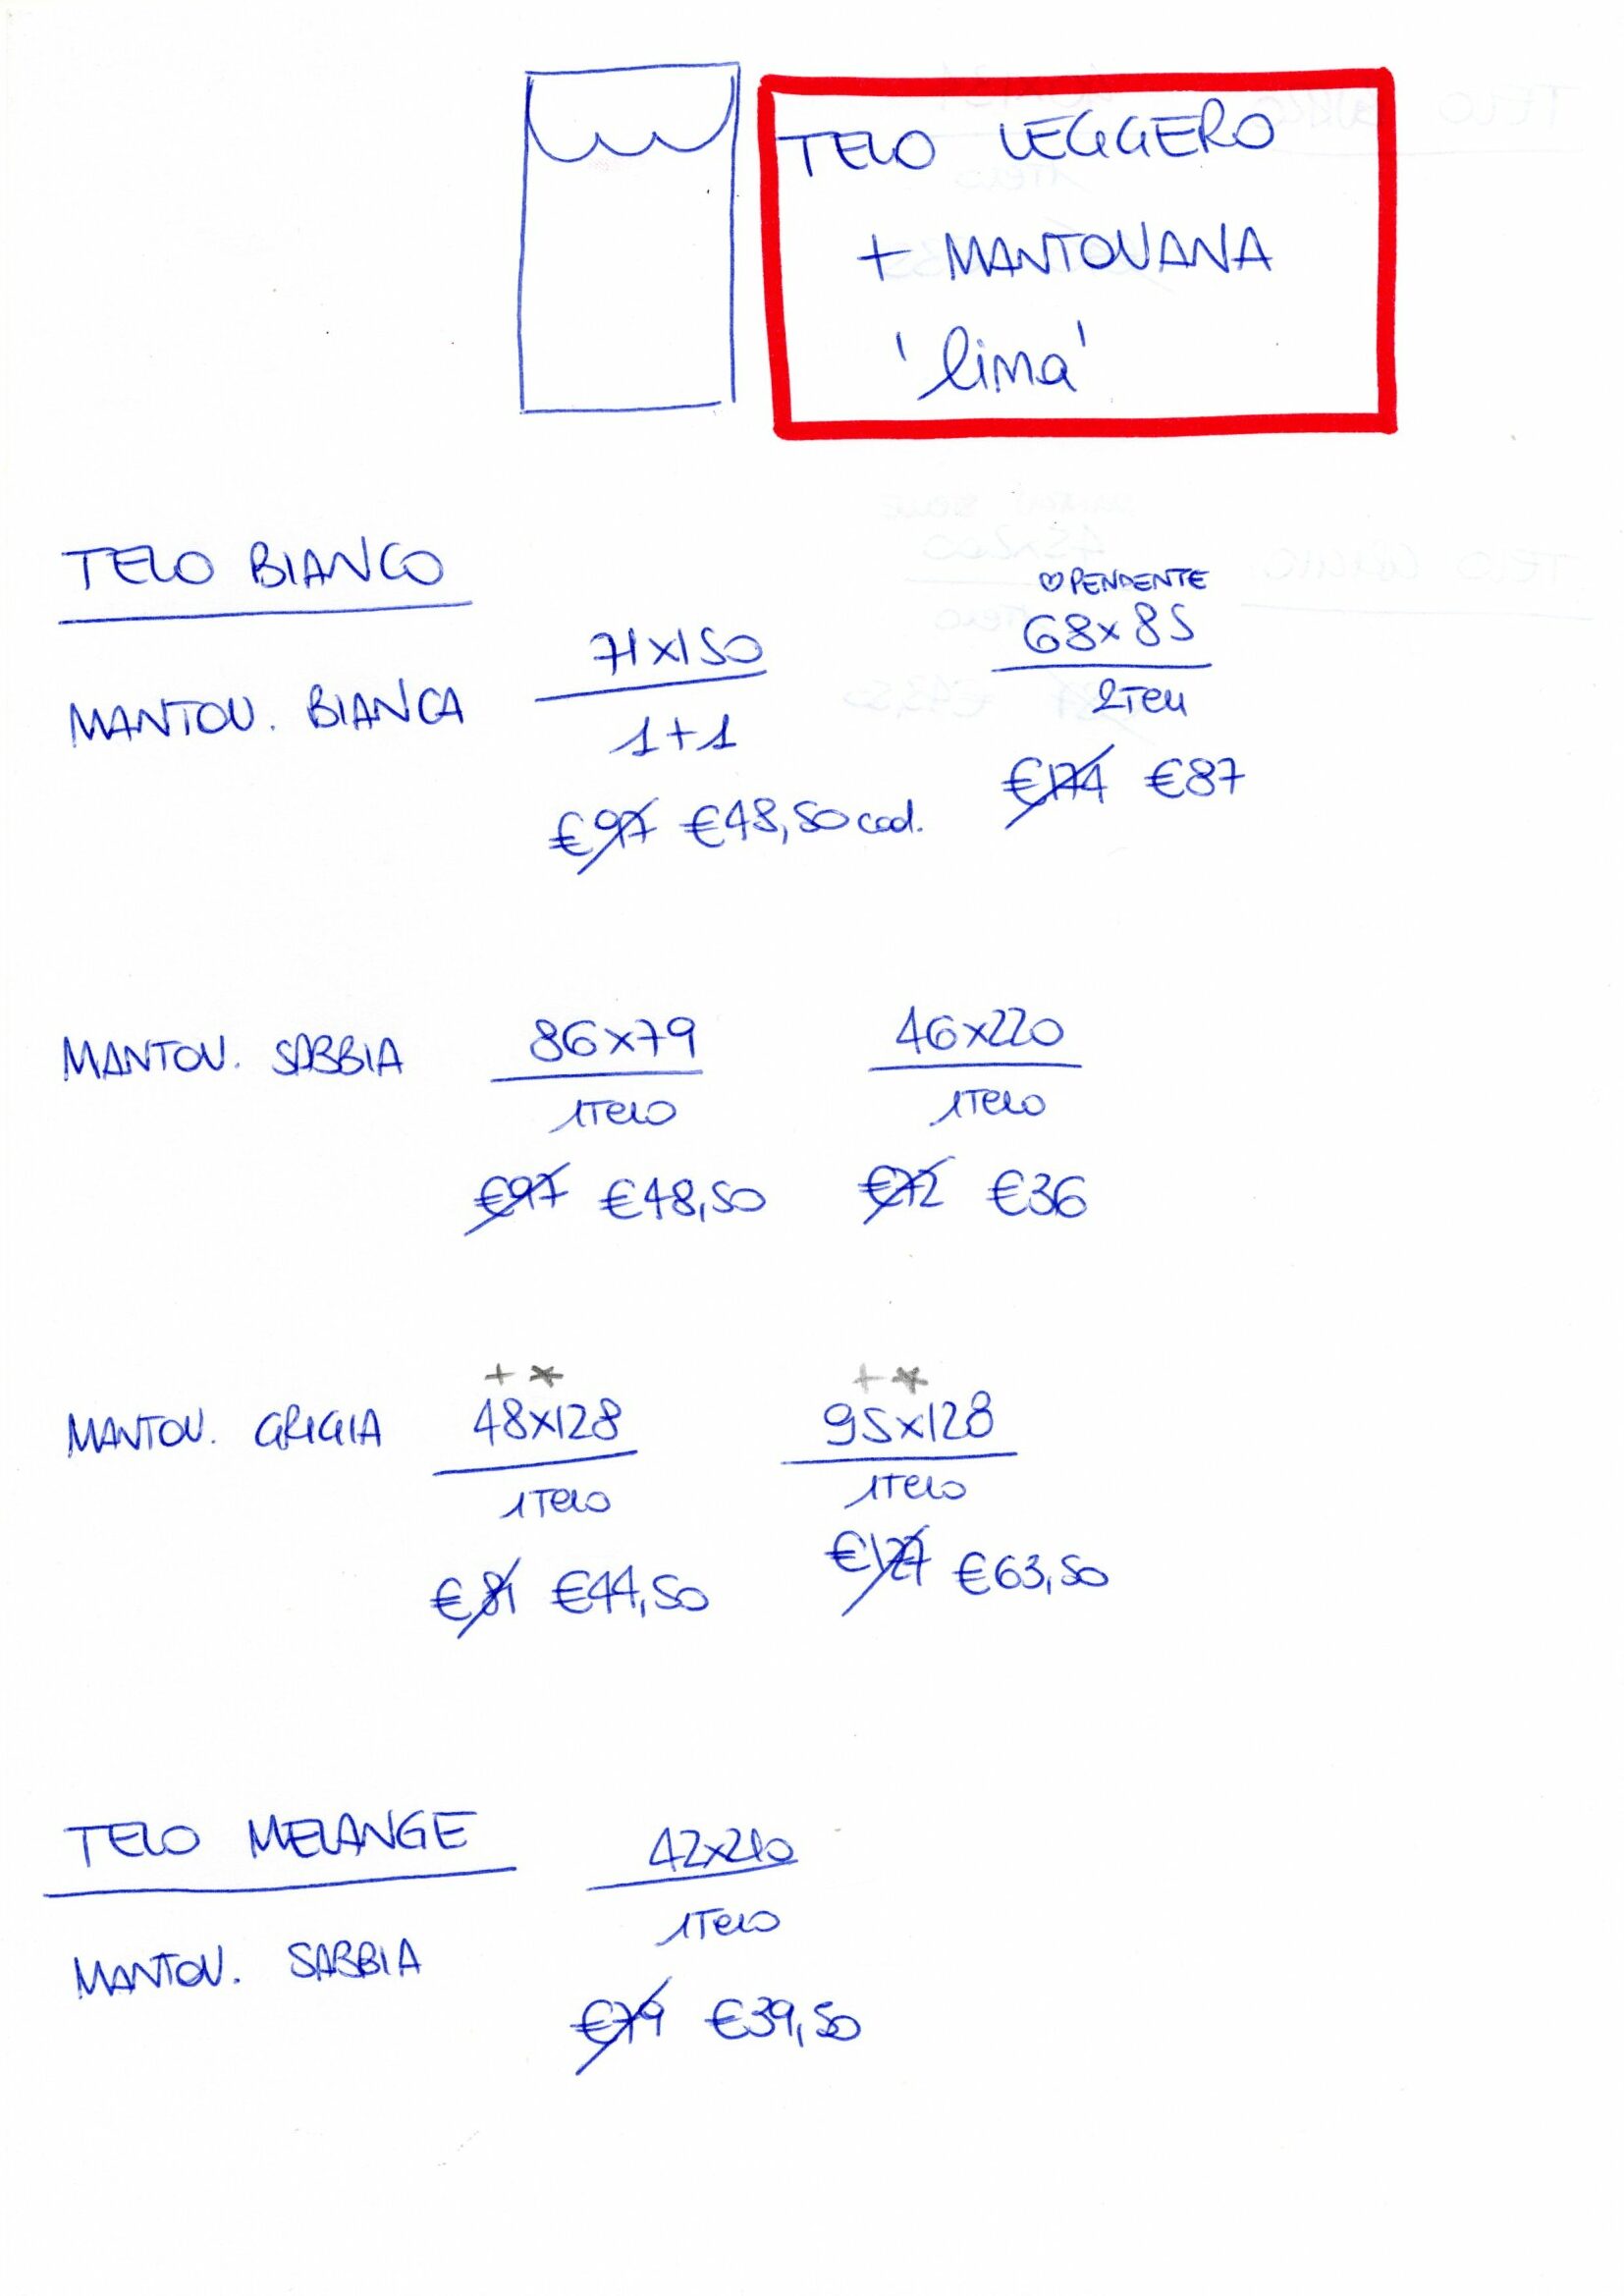 TELO LEGGERO
+ MANTOVANA
'lima'
TELO BIANCO
MANTOV. BIANCA
71x150
1+1
€97 €48,50 cad.
♡ PENDENTE
68x85
2 TELI
€174 €87
MANTOV. SABBIA
86x79
1 TELO
€97 €48,50
46x220
1 TELO
€72 €36
MANTOV. GRIGIA
+ *
48x128
1 TELO
€81 €44,50
+ *
95x128
1 TELO
€127 €63,50
TELO MELANGE
MANTOV. SABBIA
42x210
1 TELO
€79 €39,50